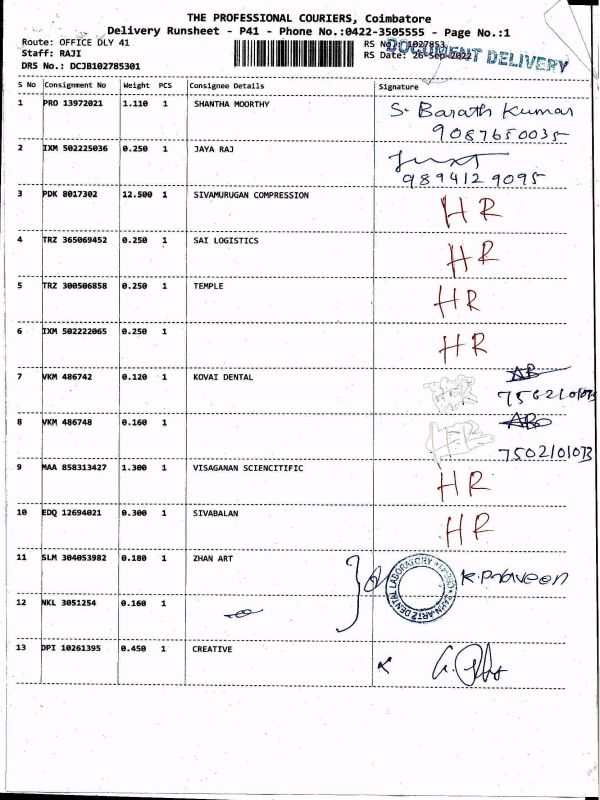 THE PROFESSIONAL COURIERS, Coimbatore
Delivery Runsheet - P41 - Phone No.:0422-3505555 - Page No.:1
Route: OFFICE DLY 41
RS No.: 1027853
DOCUMENT DELIVERY
Staff: RAJI
RS Date: 26-Sep-2022
DRS No.: DCJB102785301
S No Consignment No Weight PCS Consignee Details Signature
1 PRO 13972021 1.110 1 SHANTHA MOORTHY S. Barath Kumar
9087650035
2 IXM 502225036 0.250 1 JAYA RAJ
9894129095
3 PDK 8017302 12.500 1 SIVAMURUGAN COMPRESSION HR
4 TRZ 365069452 0.250 1 SAI LOGISTICS HR
5 TRZ 300506858 0.250 1 TEMPLE HR
6 IXM 502222065 0.250 1 HR
7 VKM 486742 0.120 1 KOVAI DENTAL
7502101073
8 VKM 486748 0.160 1
7502101073
9 MAA 858313427 1.300 1 VISAGANAN SCIENCITIFIC HR
10 EDQ 12694021 0.300 1 SIVABALAN HR
11 SLM 304053982 0.180 1 ZHAN ART K. Praveen
DENTAL LABORATORY
12 NKL 3051254 0.160 1
13 DPI 10261395 0.450 1 CREATIVE